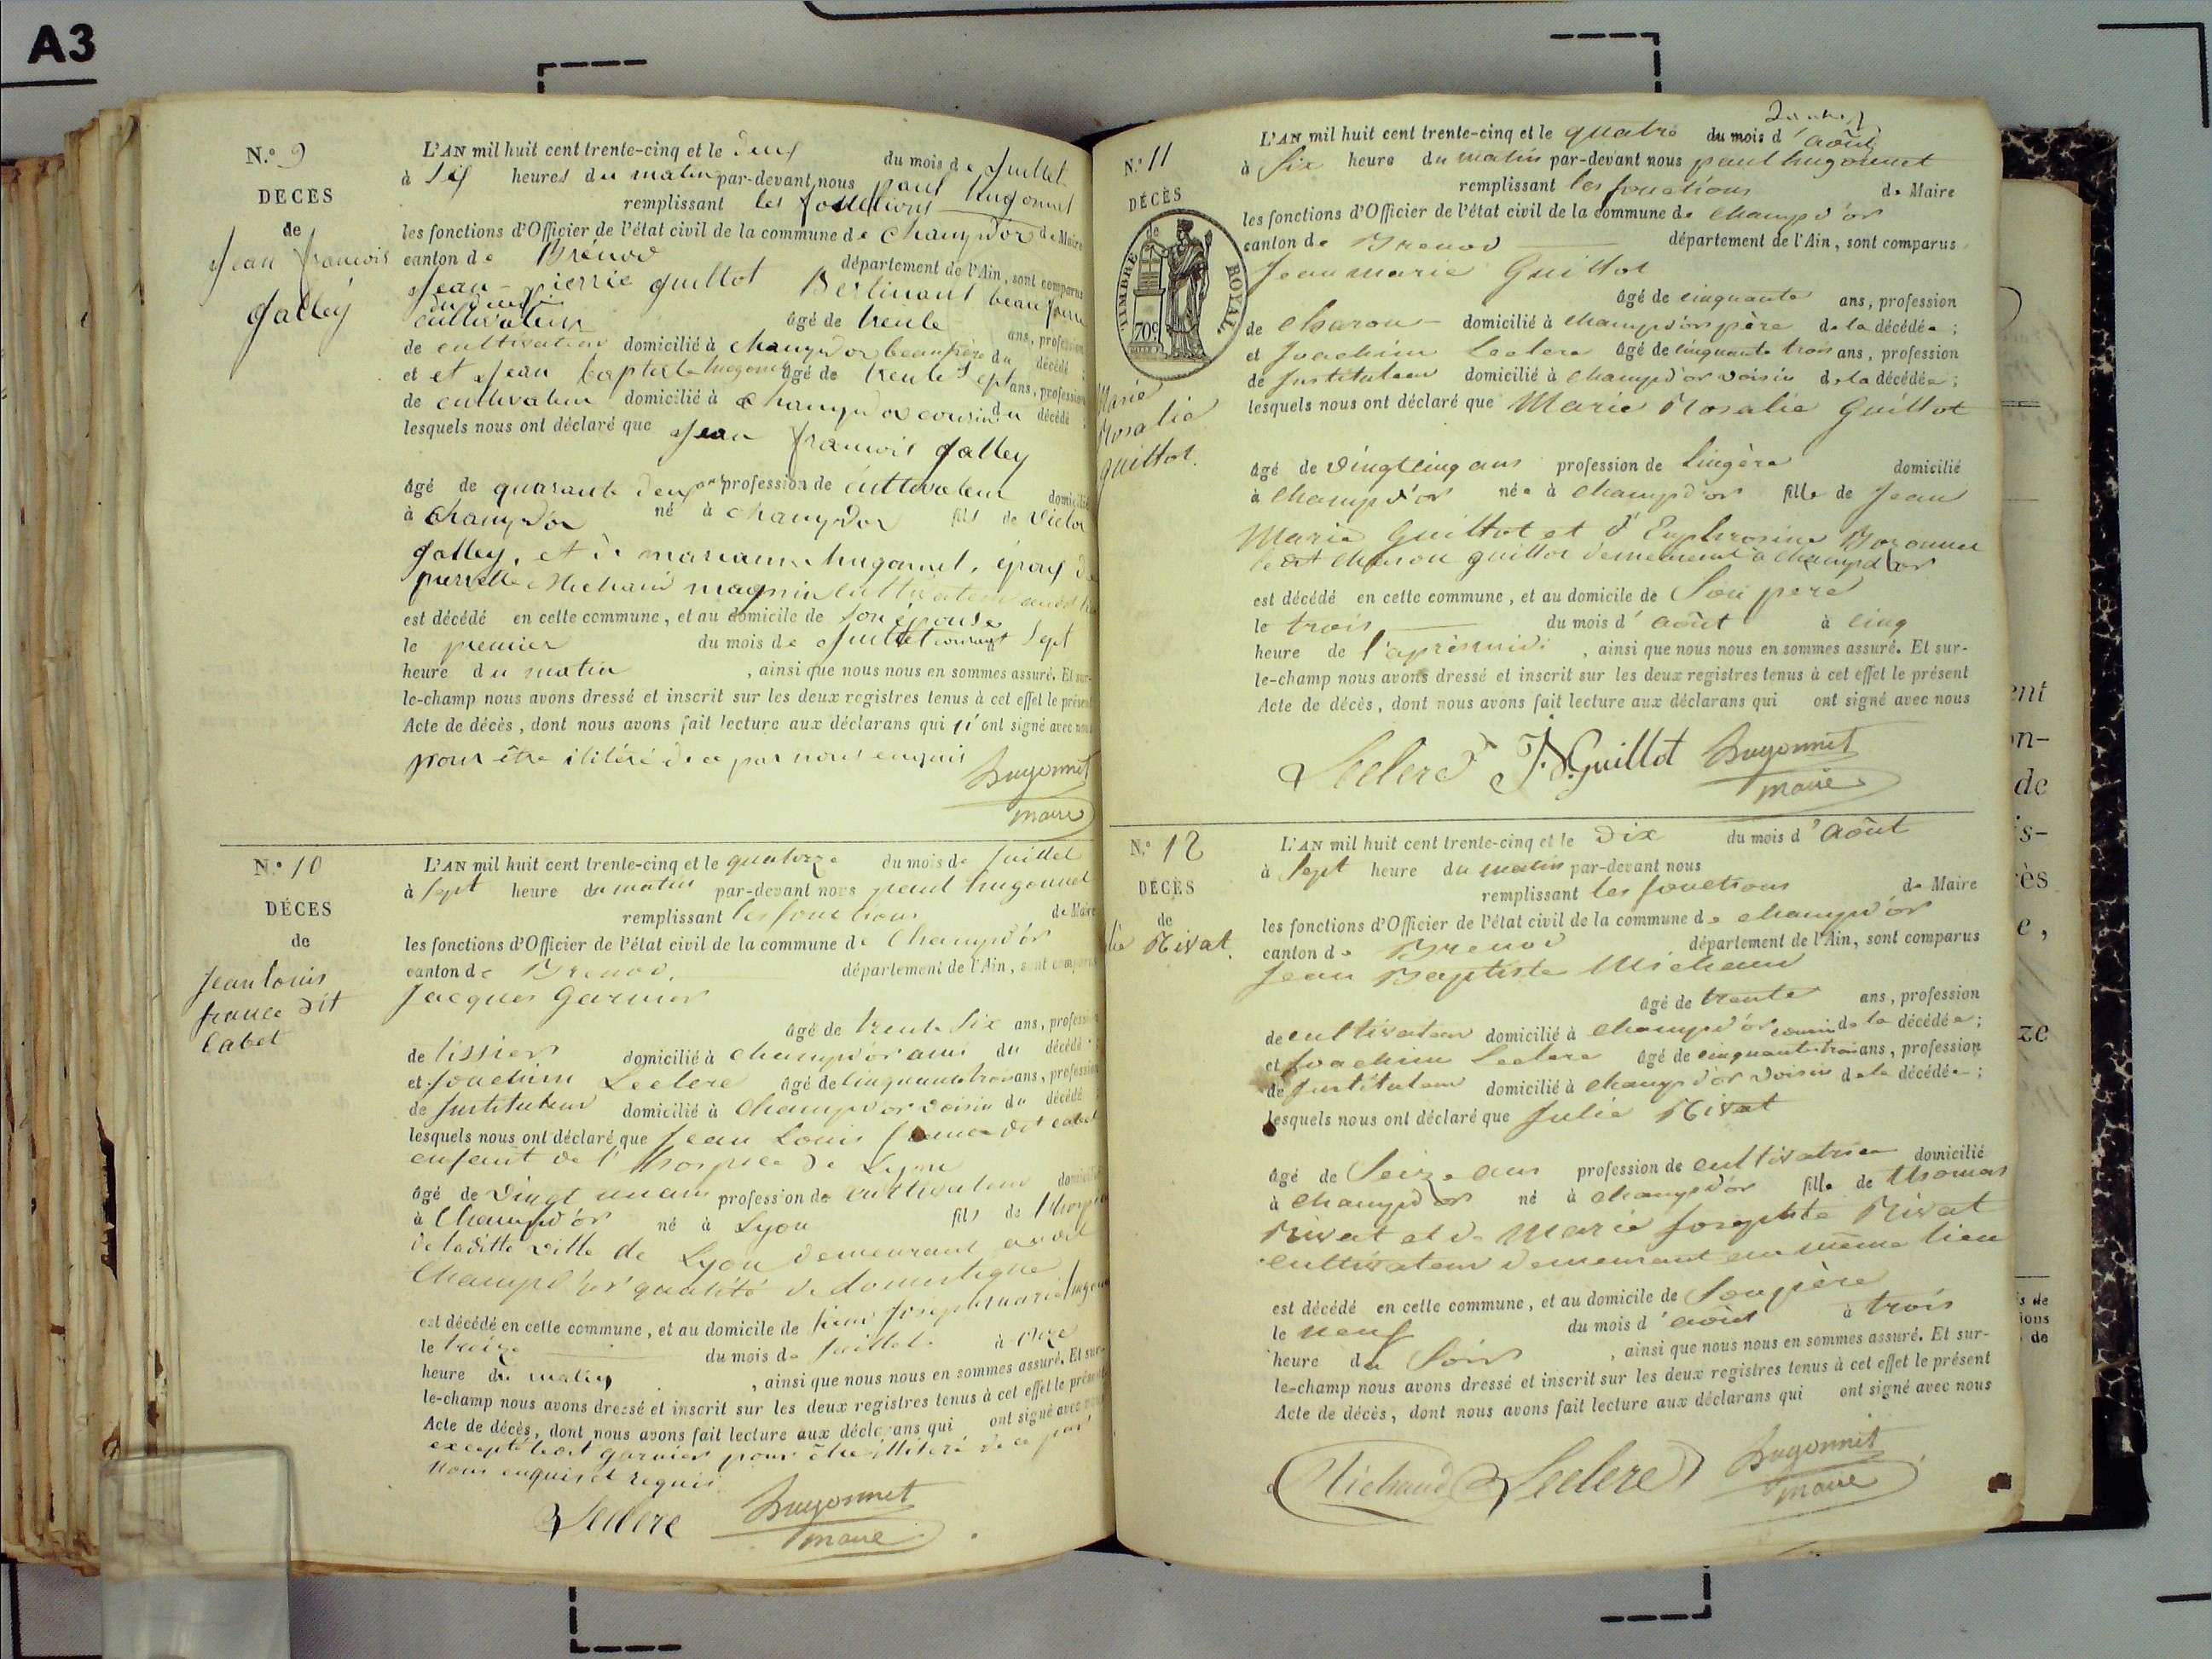 A3
N.° 9
DÉCÈS
de
Jean françois
Galley
L'AN mil huit cent trente-cinq et le deux du mois de Juillet
à six heures du matin par-devant nous paul hugonnet
remplissant les fonctions de Maire
les fonctions d'Officier de l'état civil de la commune de Champd'or
canton de Brénod département de l'Ain, sont comparus
Jean-pierre guillot
cultivateur âgé de trente ans, profession
de cultivateur domicilié à champd'or beaufrère du décédé ;
et et Jean baptiste hugonnet âgé de trente sept ans, profession
de cultivateur domicilié à Champd'or cousin du décédé ;
lesquels nous ont déclaré que Jean françois Galley
âgé de quarante deux ans profession de cultivateur domicilié
à Champd'or né à champd'or fils de Victor
Galley, et de marianne hugonnet, époux de
pierrette Michaud magnin cultivateur
est décédé en cette commune, et au domicile de son épouse
le premier du mois de Juillet courant sept
heure du matin , ainsi que nous nous en sommes assuré. Et sur-
le-champ nous avons dressé et inscrit sur les deux registres tenus à cet effet le présent
Acte de décès, dont nous avons fait lecture aux déclarans qui n'ont signé avec nous
pour être ilitéré de ce par nous enquis
hugonnet
maire
N.° 10
DÉCES
de
Jean louis
france dit
Cabet
L'AN mil huit cent trente-cinq et le quatorze du mois de Juillet
à sept heure du matin par-devant nous paul hugonnet
remplissant les fonctions de Maire
les fonctions d'Officier de l'état civil de la commune de Champd'or
canton de Brenod. département de l'Ain, sont comparus
Jacques Garnier
âgé de trente six ans, profession
de tissier domicilié à Champd'or ami du décédé ;
et Joachim Leclere âgé de cinquante trois ans, profession
de Instituteur domicilié à Champd'or voisin du décédé ;
lesquels nous ont déclaré que Jean Louis france dit cabet
enfant de l'hospice de Lyon
âgé de vingt un ans profession de cultivateur domicilié
à Champd'or né à Lyon fils de l'hospice
de laditte ville de Lyon demeurant
Champd'or qualité de domestique
est décédé en cette commune, et au domicile de sieur Joseph marie hugonnet
le treize du mois de Juillet à onze
heure du matin , ainsi que nous nous en sommes assuré. Et sur-
le-champ nous avons dressé et inscrit sur les deux registres tenus à cet effet le présent
Acte de décès, dont nous avons fait lecture aux déclarans qui ont signé avec nous
excepté ledit garnier pour être illiteré de ce par
nous enquis et requis
Leclere hugonnet
maire
N.° 11
DÉCÈS
de
TIMBRE ROYAL.
70c
Marie
Rosalie
guillot.
L'AN mil huit cent trente-cinq et le quatre du mois d'août
à six heure du matin par-devant nous paul hugonnet
remplissant les fonctions de Maire
les fonctions d'Officier de l'état civil de la commune de Champd'or
canton de Brenod département de l'Ain, sont comparus
Jean marie Guillot
âgé de cinquante ans, profession
de charon domicilié à Champd'or père de la décédée ;
et Joachim Leclere âgé de cinquante trois ans, profession
de Instituteur domicilié à Champd'or voisin de la décédée ;
lesquels nous ont déclaré que Marie Rosalie Guillot
âgé de vingt cinq ans profession de Lingère domicilié
à Champd'or née à Champd'or fille de Jean
Marie Guillot et d'Euphrosine
guillot demeurant à Champd'or
est décédé en cette commune, et au domicile de son pere
le trois du mois d'août à cinq
heure de l'aprèsmidi , ainsi que nous nous en sommes assuré. Et sur-
le-champ nous avons dressé et inscrit sur les deux registres tenus à cet effet le présent
Acte de décès, dont nous avons fait lecture aux déclarans qui ont signé avec nous
Leclere J.M Guillot hugonnet
maire
N.° 12
DÉCÈS
de
lie Rivat.
L'AN mil huit cent trente-cinq et le dix du mois d'août
à sept heure du matin par-devant nous
remplissant les fonctions de Maire
les fonctions d'Officier de l'état civil de la commune de champd'or
canton de Brenod département de l'Ain, sont comparus
Jean Baptiste Michaud
âgé de trente ans, profession
de cultivateur domicilié à Champd'or cousin de la décédée ;
et Joachim Leclere âgé de cinquante trois ans, profession
de Instituteur domicilié à Champd'or voisin de la décédée ;
lesquels nous ont déclaré que Julie Rivat
âgé de seize ans profession de cultivatrice domicilié
à champd'or né à champd'or fille de Thomas
Rivat et de Marie Josephte Rivat
cultivateur demeurant au même lieu
est décédé en cette commune, et au domicile de son père
le neuf du mois d'août à trois
heure du soir , ainsi que nous nous en sommes assuré. Et sur-
le-champ nous avons dressé et inscrit sur les deux registres tenus à cet effet le présent
Acte de décès, dont nous avons fait lecture aux déclarans qui ont signé avec nous
Michaud Leclere hugonnet
maire